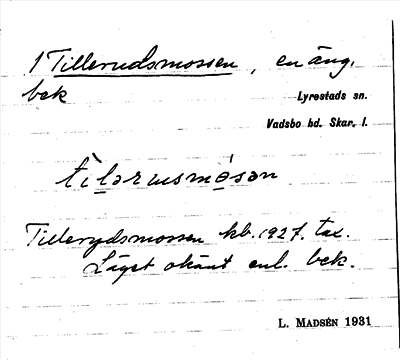 1 Tillerudsmossen, en äng,
bek
Lyrestads sn.
Vadsbo hd. Skar. l.
tilərusmosən
Tillerydsmossen kb. 1927. tax.
Läget okänt enl. bek.
L. MADSÉN 1931